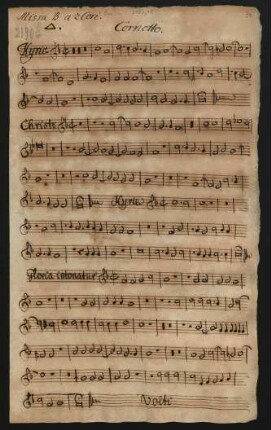 Missa B a 2 Cori.
Cornetto.
Kyrie
Christe
Kyrie
Gloria intonatur
Volti